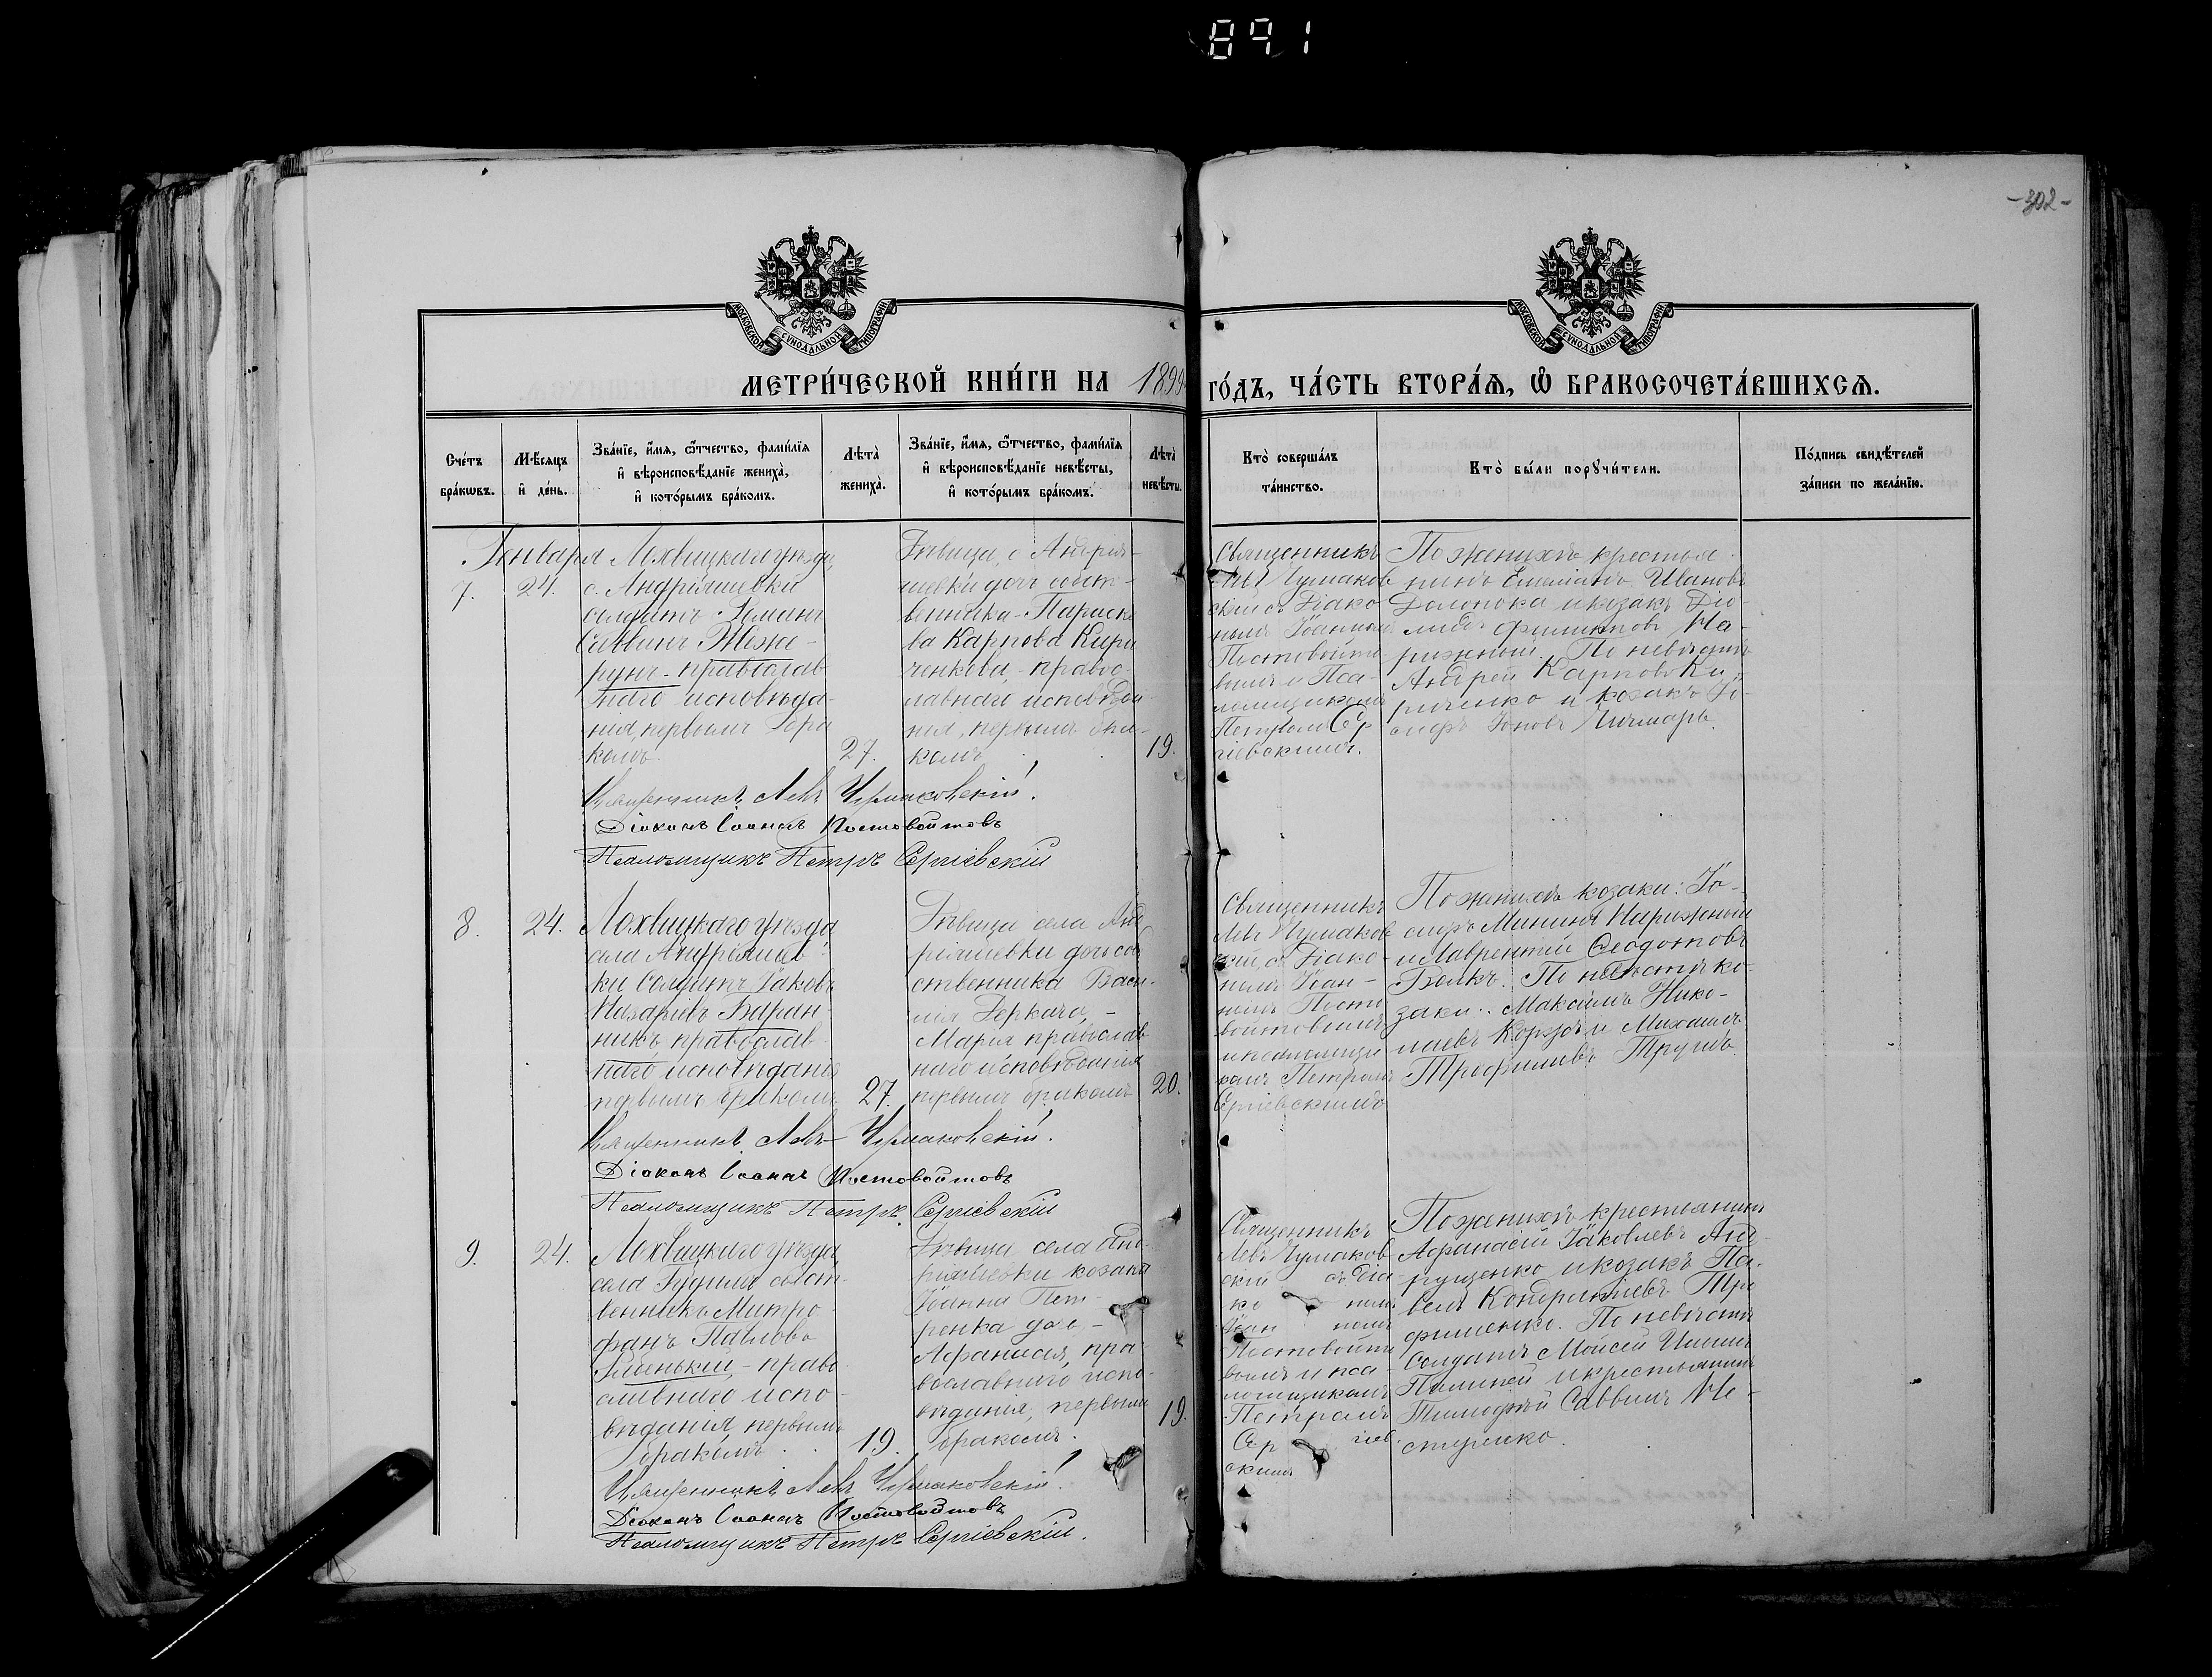 891
-302-
МОСКОВСКОЙ СѴНОДАЛЬНОЙ ТИПОГРАФІИ
МОСКОВСКОЙ СѴНОДАЛЬНОЙ ТИПОГРАФІИ
МЕТРИ́ЧЕСКОЙ КНИ́ГИ НА 1899 ГО́ДЪ, ЧА́СТЬ ВТОРА́Ѧ, Ѽ БРАКОСОЧЕТА́ВШИХСѦ.
Сче́тъ
бра́кѡвъ.
Мѣ́сяцъ
и҆ де́нь.
Зва́нїе, и҆́мя, ѻ҆́тчество, фами́лїя
и҆ вѣроисповѣ́данїе жениха̀,
и҆ кото́рымъ бра́комъ.
Лѣта̀
жениха̀.
Зва́нїе, и҆́мя, ѻ҆́тчество, фами́лїя
и҆ вѣроисповѣ́данїе невѣ́сты,
и҆ кото́рымъ бра́комъ.
Лѣта̀
невѣ́сты.
Кто̀ соверша́лъ
та́инство.
Кто̀ бы́ли порꙋчи́тели.
По́дпись свидѣ́телей
за́писи по жела́нїю.
Января
7.
24.
Лохвицкаго уѣзда,
с. Андріяшевки
солдатъ
Саввинъ
православ-
наго исповѣда-
нія, первымъ бра
комъ.
27.
Дѣвица, с. Андрія-
шевки дочь собст-
венника - Параске
ва Карпова Кири
ченкова, - правос-
лавнаго исповѣда-
нія, первымъ бра-
комъ
19.
Священникъ
Левъ Чумаков
скій съ Діако-
номъ Іоанномъ
Постовойто
вымъ и Пса-
ломщикомъ
Петромъ Сер
гіевскимъ.
По женихѣ крестья-
нинъ Емеліанъ Ивановъ
и козакъ Діо-
мидъ Филиповъ На-
рижный. По невѣстѣ
Андрей Карповъ Ки-
риченко и козакъ Іо-
сифъ
Священникъ Левъ Чумаковскій.
Діаконъ Іоаннъ Постовойтовъ
Псаломщикъ Петръ Сергіевскій
8.
24.
Лохвицкаго уѣзда
села Андріяшев-
ки Солдатъ Іаковъ
Назаріевъ Баран-
никъ православ-
наго исповѣданія
первымъ бракомъ
27.
Дѣвица села Анд
ріяшевки дочь соб
ственника Васи-
лія Деркача, -
Марія православ
наго исповѣданія
первымъ бракомъ
20.
Священникъ
Левъ Чумаков
скій, съ Діако-
номъ Іоан-
номъ Посто
войтовымъ
и псаломщи
комъ Петромъ
Сергіевскимъ
По женихѣ козаки: Іо-
сифъ Мининъ Нарижный
и Лаврентій Ѳеодотовъ
Волкъ. По невѣстѣ ко-
заки: Максимъ Нико-
лаевъ Коржъ и Михаилъ
Трофимовъ
Священникъ Левъ Чумаковскій.
Діаконъ Іоаннъ Постовойтовъ
Псаломщикъ Петръ Сергіевскій
9.
24.
Лохвицкаго уѣзда,
села собст-
венникъ Митро-
фанъ Павловъ
- право-
славнаго испо-
вѣданія, первымъ
бракомъ.
19.
Дѣвица села Анд-
ріяшевки козака
Іоанна Пет-
ренка дочь -
Афанасія, пра-
вославнаго испо-
вѣданія, первымъ
бракомъ.
19.
Священникъ
Левъ Чумаков
скій съ Діа
ко номъ
Іоан номъ
Постовойто
вымъ и пса-
ломщикомъ
Петромъ
Сер гіев
скимъ
По женихѣ крестьянинъ
Афанасій Іаковлевъ Анд-
рущенко и козакъ Па-
велъ Кондратіевъ Тро
фименко. По невѣстѣ
Солдатъ Моисей
и крестьянинъ
Тимофей Саввинъ Не-
Священникъ Левъ Чумаковскій.
Діаконъ Іоаннъ Постовойтовъ
Псаломщикъ Петръ Сергіевскій.